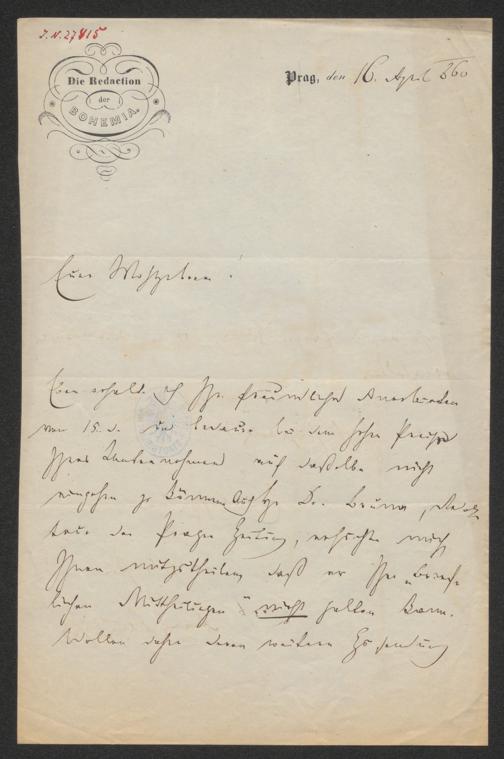 J.N. 27415
Die Redaction
der
BOHEMIA.
Prag, den 16. April 860
Euer Wohlgeboren!
Eben erhalte ich Ihr freundliches Anerbieten
vom 15. d. und bedaure bei dem hohen Preise
Ihres Unternehmens auf dasselbe nicht
eingehen zu können. Auch Dr. Bruna, Redak-
teur der Prager Zeitung, ersucht mich
Ihnen mitzutheilen, daß er Ihre „Brief-
lichen Mittheilungen“ nicht halten kann.
Wollen daher deren weitere Zusendung